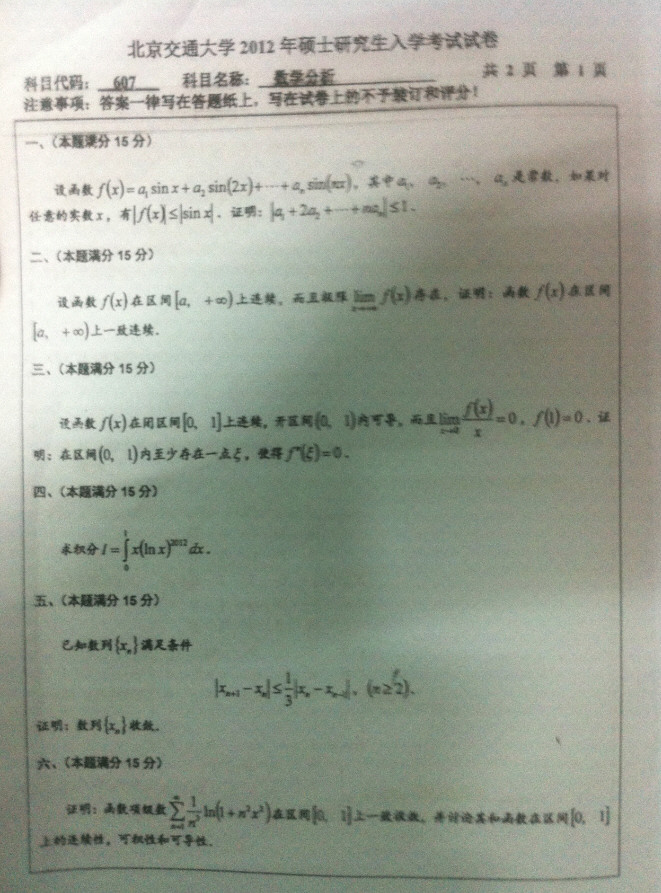 北京交通大学 2012 年硕士研究生入学考试试卷
科目代码： 607 科目名称： 数学分析 共 2 页 第 1 页
注意事项：答案一律写在答题纸上，写在试卷上的不予装订和评分！
一、（本题满分 15 分）
设函数 f(x)=a₁sin x+a₂sin(2x)+⋯+aₙsin(nx)，其中 a₁、 a₂、 ⋯、 aₙ 是常数。如果对
任意的实数 x，有|f(x)|≤|sin x|．证明：|a₁+2a₂+⋯+naₙ|≤1．
二、（本题满分 15 分）
设函数 f(x) 在区间[a, +∞)上连续，而且极限 lim x→+∞ f(x) 存在．证明：函数 f(x) 在区间
[a, +∞)上一致连续．
三、（本题满分 15 分）
设函数 f(x) 在闭区间[0, 1]上连续，开区间(0, 1)内可导，而且 lim x→0 f(x)/x=0，f(1)=0．证
明：在区间(0, 1)内至少存在一点 ξ，使得 f″(ξ)=0．
四、（本题满分 15 分）
求积分 I=∫₀¹x(ln x)²⁰¹²dx．
五、（本题满分 15 分）
已知数列{xₙ}满足条件
|xₙ₊₁−xₙ|≤1/3|xₙ−xₙ₋₁|，(n≥2)．
证明：数列{xₙ}收敛．
六、（本题满分 15 分）
证明：函数项级数 ∑ₙ₌₁^∞ 1/n³ ln(1+n²x²) 在区间[0, 1]上一致收敛，并讨论其和函数在区间[0, 1]
上的连续性，可积性和可导性．